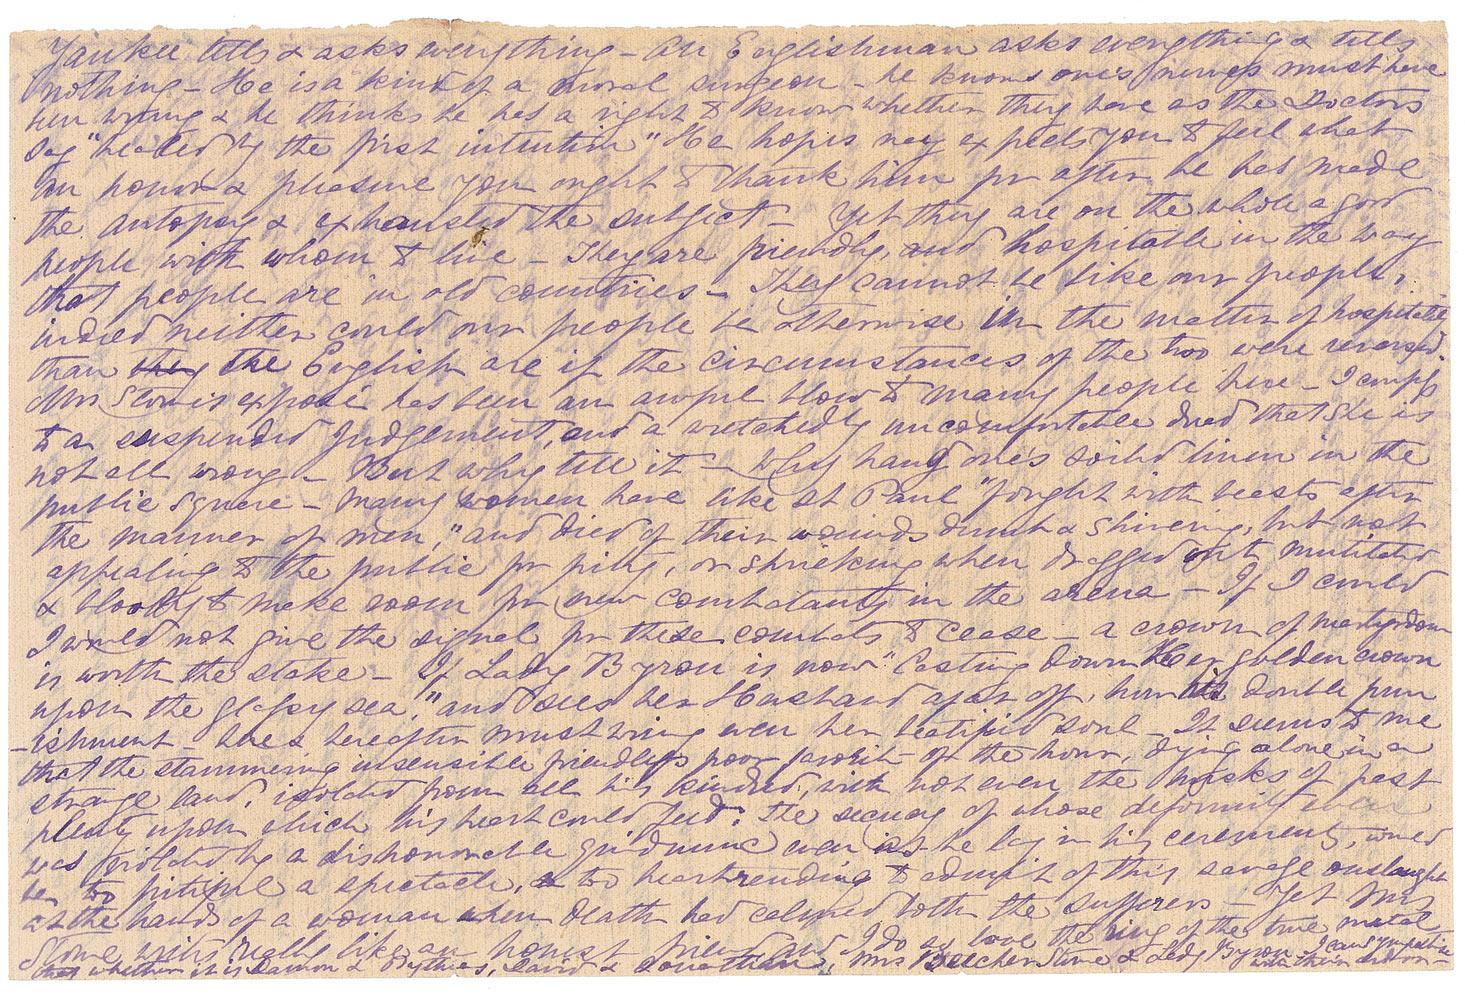 Yankee tells & asks everything – An Englishman asks everything & tells
nothing – He is a kind of a moral surgeon – he knows one's nerves must have
been wrung & he thinks he has a right to know whether they have as the Doctors
say "healed by the first intention" He hopes nay expects you to feel what
an honor & pleasure you ought to thank him for after he has made
the autopsy & exhausted the subject – Yet they are on the whole a good
people with whom to live – They are friendly, and hospitable in the way
that people are in old countries – They cannot be like our people,
indeed neither could our people be otherwise in the matter of hospitality
than they the English are if the circumstances of the two were reversed.
Mrs Stowe's exposé has been an awful blow to many people here – I confess
to a suspended judgement, and a wretchedly uncomfortable dread that she is
not all wrong – But why tell it – Why hang one's soiled linen in the
public square – Many women have like St Paul "fought with beasts after
the manner of men," and died of their wounds dumb & shivering, but not
appealing to the public for pity, or shrieking when dragged out mutilated
& bloody to make room for new combatants in the arena – If I could
I would not give the signal for these combats to cease – a crown of martyrdom
is worth the stake – If Lady Byron is now "Casting down Her golden crown
upon the glassy sea," and sees her Husband afar off, his double pun
-ishment – here & hereafter must wring even her beatified soul – It seems to me
that the stammering insensible friendless poor favorite of the hour, dying alone in a
strange land, isolated from all his kindred, with not even the husks of past
plenty upon which his heart could feed: The secrecy of whose deformity even
was violated by a dishonorable even as he lay in his cerements, would
be too pitiful a spectacle, too heartrending to admit of this savage onslaught
at the hands of a woman when death had calmed both the sufferers – Yet Mrs
Stowe writes really like an honest friend and I do so love the ring of the true metal
that whether it is Damon & Pythias, David & Jonathan, Mrs Beecher Stowe & Lady Byron I can sympathise with their